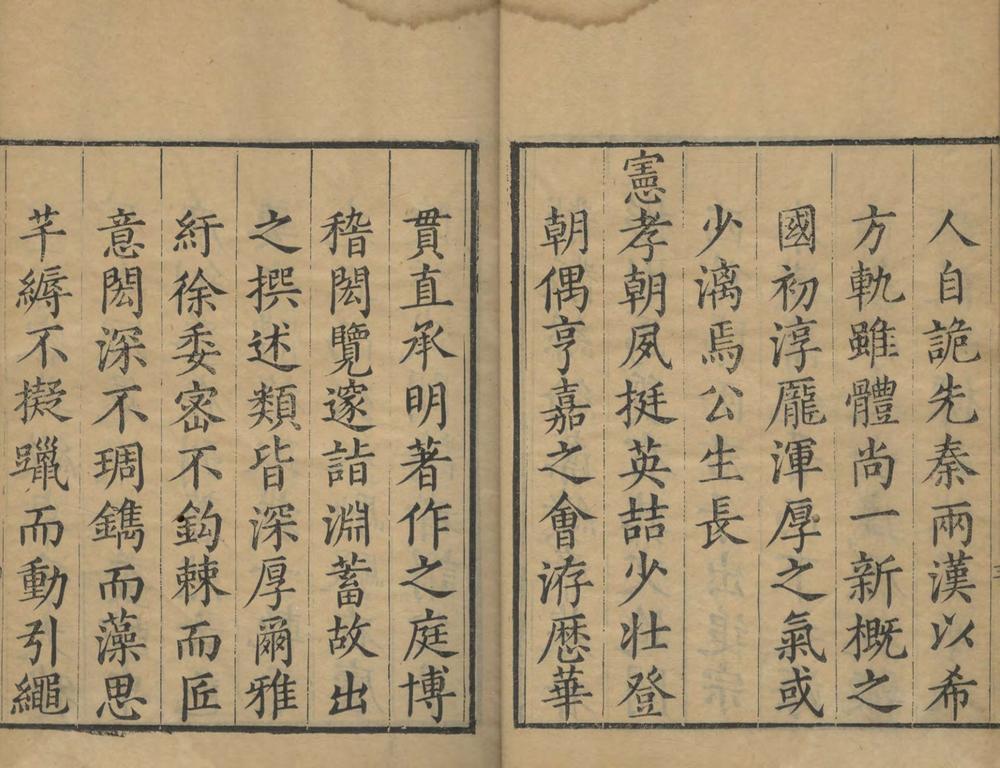 人自詭先秦兩漢以希
方軌雖體尚一新概之
國初淳龐渾厚之氣或
少漓焉公生長
憲孝朝夙挺英喆少壯登
朝偶亨嘉之會洊歷華
貫直承明著作之庭博
稽閎覽邃詣淵蓄故出
之撰述類皆深厚爾雅
紆徐委宻不鈎棘而匠
意閎深不琱鐫而藻思
芊縟不擬躐而動引繩